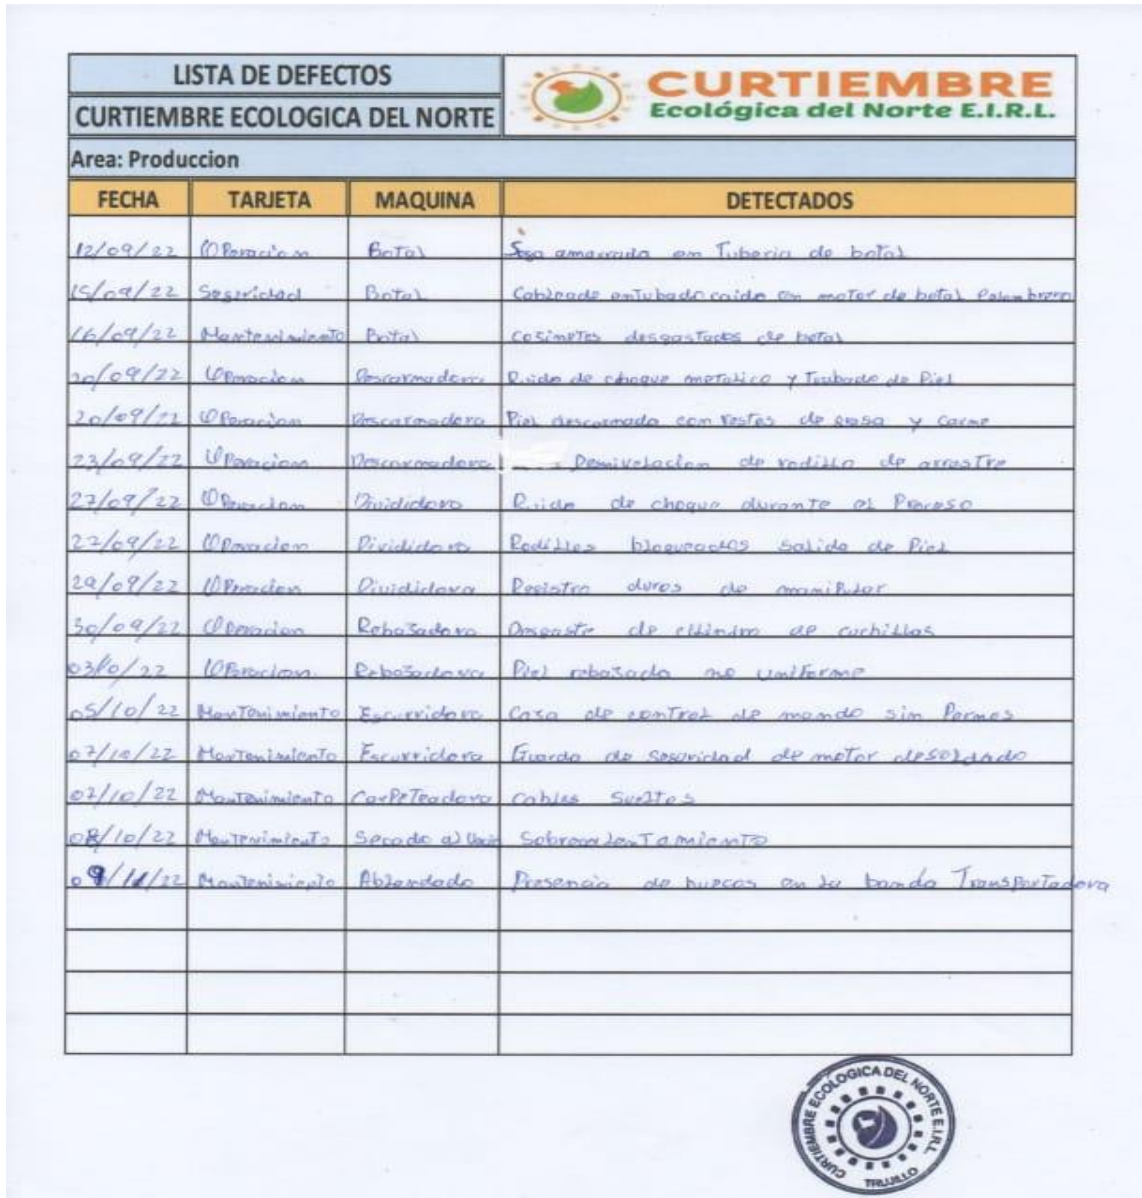 LISTA DE DEFECTOS
CURTIEMBRE ECOLOGICA DEL NORTE
CURTIEMBRE
Ecológica del Norte E.I.R.L.
Area: Produccion
FECHA TARJETA MAQUINA DETECTADOS
12/09/22 Operacion Botal Soga amarrada en Tuberia de botal
15/09/22 Seguridad Botal Cableado entubado caido en motor de botal Palambrero
16/09/22 Mantenimiento Botal cosinetes desgastados de botal
20/09/22 Operacion Descarnadora Ruido de choque metalico y Trabado de Piel
20/09/22 Operacion Descarnadora Piel descarnada con restos de grasa y carne
23/09/22 Operacion Descarnadora Desnivelacion de rodillo de arrastre
27/09/22 Operacion Divididora Ruido de choque durante el Proceso
27/09/22 Operacion Divididora Rodillos bloqueados salida de Piel
29/09/22 Operacion Divididora Registro duros de manipular
30/09/22 Operacion Rebajadora Desgaste de cilindro de cuchillas
03/10/22 Operacion Rebajadora Piel rebajada no uniforme
05/10/22 Mantenimiento Escurridora Caja de control de mando sin Pernos
07/10/22 Mantenimiento Escurridora Guarda de seguridad de motor desoldado
07/10/22 Mantenimiento CarPeTeadora cables Sueltos
08/10/22 Mantenimiento Secado al Vacio Sobrecalentamiento
09/11/22 Mantenimiento Ablandado Presencia de huecos en la banda TransPortadora
CURTIEMBRE ECOLOGICA DEL NORTE E.I.R.L.
TRUJILLO